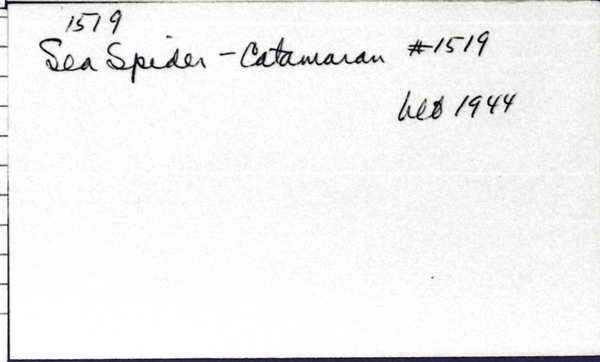 1519
Sea Spider - Catamaran #1519
1944